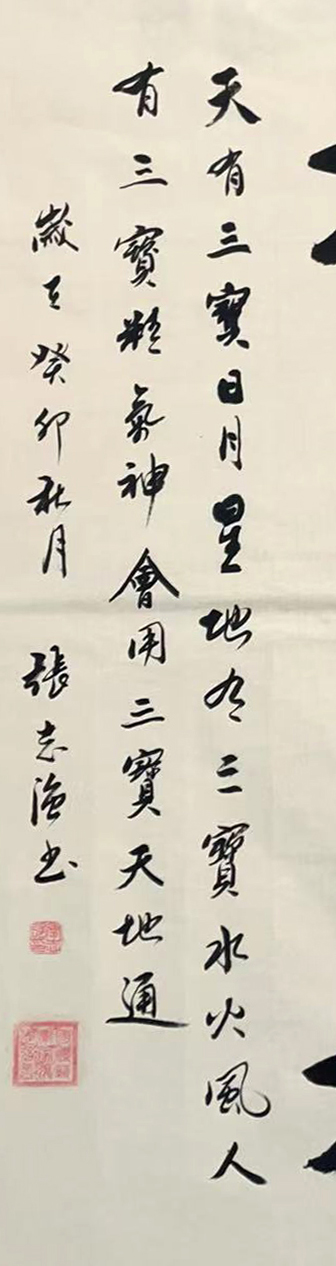 天有三寶日月星地有三寶水火風人
有三寶精氣神會用三寶天地通
歲在癸卯秋月 張志 书